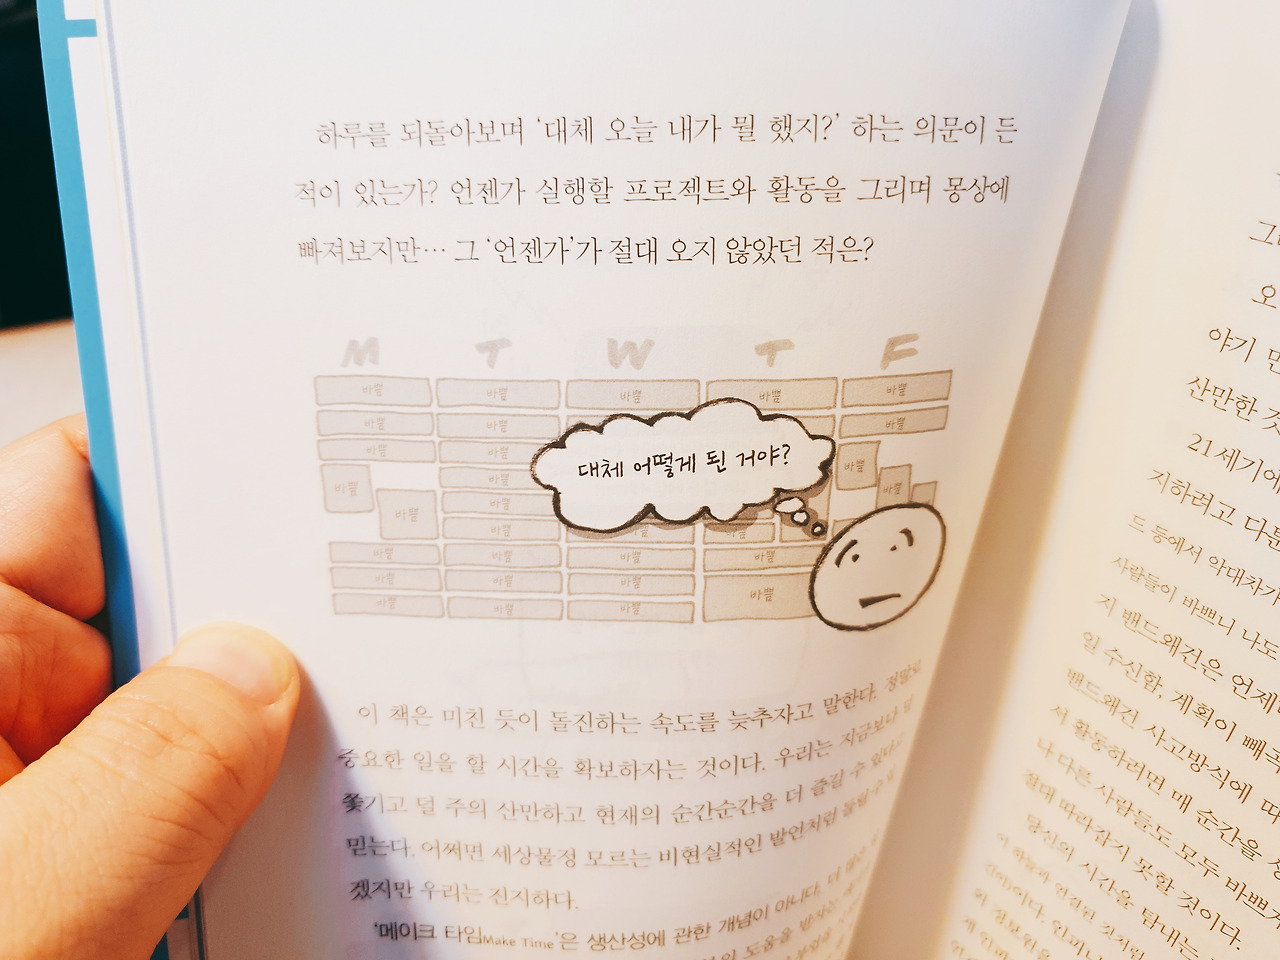 하루를 되돌아보며 ‘대체 오늘 내가 뭘 했지?’ 하는 의문이 든
적이 있는가? 언젠가 실행할 프로젝트와 활동을 그리며 몽상에
빠져보지만… 그 ‘언젠가’가 절대 오지 않았던 적은?
M T W T F
바쁨 바쁨 바쁨 바쁨 바쁨
바쁨 바쁨 바쁨
바쁨 바쁨
대체 어떻게 된 거야?
바쁨 바쁨 바쁨 바쁨
바쁨 바쁨
바쁨 바쁨 바쁨
바쁨 바쁨 바쁨 바쁨
바쁨 바쁨 바쁨 바쁨
바쁨 바쁨 바쁨
이 책은 미친 듯이 돌진하는 속도를 늦추자고 말한다. 정말로
중요한 일을 할 시간을 확보하자는 것이다. 우리는 지금보다 덜
쫓기고 덜 주의 산만하고 현재의 순간순간을 더 즐길 수 있다고
믿는다. 어쩌면 세상물정 모르는 비현실적인 발언처럼 들릴 수도
있겠지만 우리는 진지하다.
‘메이크 타임Make Time’은 생산성에 관한 개념이 아니다. 더 많은
도움을
오
야기
산만한
21세기에
지하려고 다른
드 등에서 악대차가
사람들이 바쁘니 나도
지 밴드왜건은 언제
일 수신함, 계획이 빼곡
밴드왜건 사고방식에 따
서 활동하려면 매 순간을 생
나 다른 사람들도 모두 바쁘
절대 따라잡지 못할 것이다.
당신의 시간을 탐내는